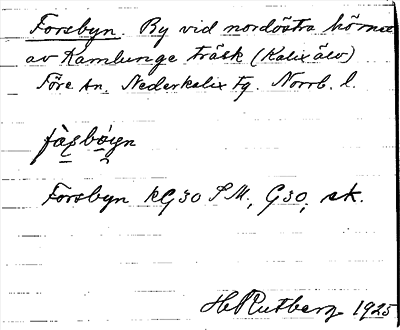 Forsbyn. By vid nordöstra hörnet
av Kamlunge träsk (Kalix älv)
Töre sn. Nederkalix tg. Norrb. l.
Forsbyn kG30 SM., G30, sk.
H Rutberg 1925